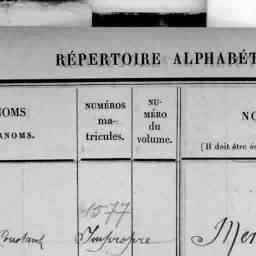 RÉPERTOIRE ALPHABÉT
NOMS
ANOMS.
NUMÉROS
ma-
tricules.
NU-
MÉRO
du
volume.
NO
(Il doit être é
1577
Constant Impropre Mer